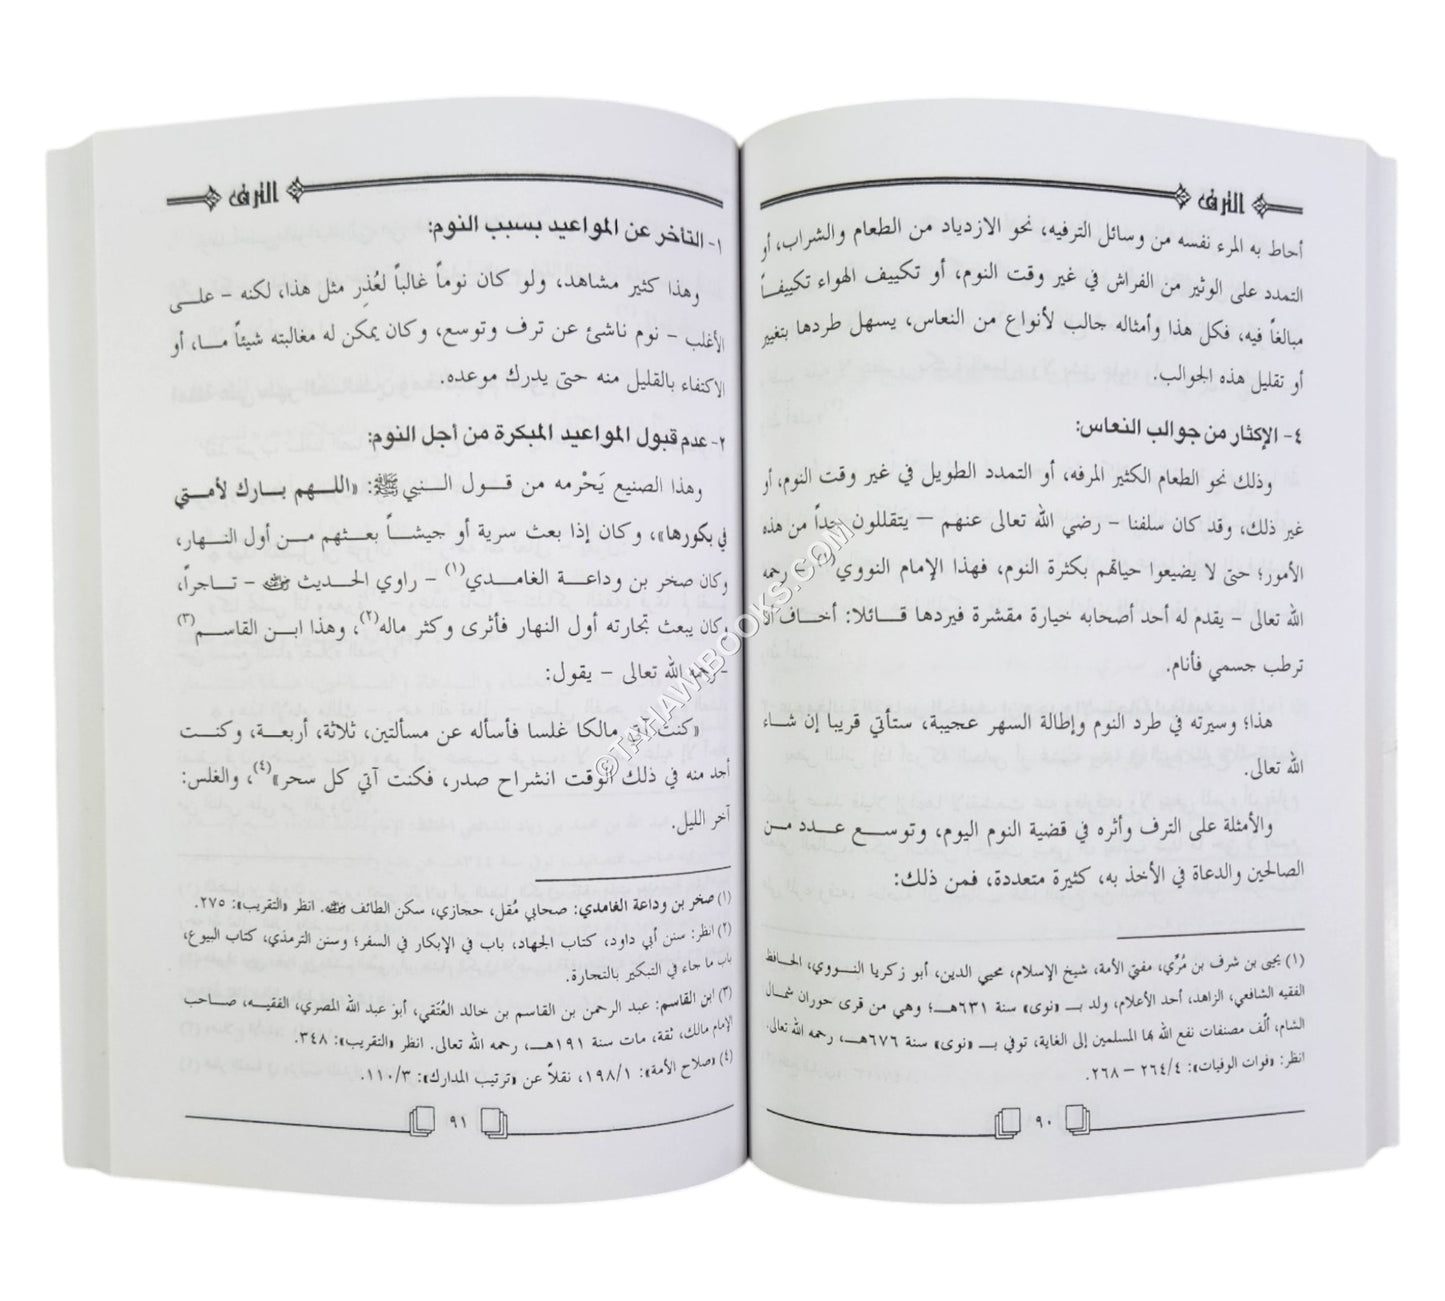 الترف
أحاط به المرء نفسه من وسائل الترفيه، نحو الازدياد من الطعام والشراب، أو
التمدد على الوثير من الفراش في غير وقت النوم، أو تكييف الهواء تكييفاً
مبالغاً فيه، فكل هذا وأمثاله جالب لأنواع من النعاس، يسهل طردها بتغيير
أو تقليل هذه الجوالب.
٤- الإكثار من جوالب النعاس:
وذلك نحو الطعام الكثير المرفه، أو التمدد الطويل في غير وقت النوم، أو
غير ذلك، وقد كان سلفنا - رضي الله تعالى عنهم – يتقللون جداً من هذه
الأمور؛ حتى لا يضيعوا حياتهم بكثرة النوم، فهذا الإمام النووي(١) - رحمه
الله تعالى - يقدم له أحد أصحابه خيارة مقشرة فيردها قائلا: أخاف أن
ترطب جسمي فأنام.
هذا؛ وسيرته في طرد النوم وإطالة السهر عجيبة، ستأتي قريبا إن شاء
الله تعالى.
والأمثلة على الترف وأثره في قضية النوم اليوم، وتوسع عدد من
الصالحين والدعاة في الأخذ به، كثيرة متعددة، فمن ذلك:
(١) يحيى بن شرف بن مُرِّي، مفتي الأمة، شيخ الإسلام، محيي الدين، أبو زكريا النووي، الحافظ
الفقيه الشافعي، الزاهد، أحد الأعلام، ولد بـ «نوى» سنة ٦٣١هـ؛ وهي من قرى حوران شمال
الشام، ألّف مصنفات نفع الله بها المسلمين إلى الغاية، توفي بـ «نوى» سنة ٦٧٦هـ، رحمه الله تعالى.
انظر: «فوات الوفيات»: ٢٦٤/٤ – ٢٦٨.
٩٠
الترف
١- التأخر عن المواعيد بسبب النوم:
وهذا كثير مشاهد، ولو كان نوماً غالباً لعُذِر مثل هذا، لكنه - على
الأغلب - نوم ناشئ عن ترف وتوسع، وكان يمكن له مغالبته شيئاً ما، أو
الاكتفاء بالقليل منه حتى يدرك موعده.
٢- عدم قبول المواعيد المبكرة من أجل النوم:
وهذا الصنيع يَحْرمه من قول النبي ﷺ: «اللهم بارك لأمتي
في بكورها»، وكان إذا بعث سرية أو جيشاً بعثهم من أول النهار،
وكان صخر بن وداعة الغامدي(١) - راوي الحديث رضي الله عنه - تاجراً،
وكان يبعث تجارته أول النهار فأثرى وكثر ماله(٢)، وهذا ابن القاسم(٣)
- رحمه الله تعالى - يقول:
«كنت آتي مالكا غلسا فأسأله عن مسألتين، ثلاثة، أربعة، وكنت
أجد منه في ذلك الوقت انشراح صدر، فكنت آتي كل سحر»(٤)، والغلس:
آخر الليل.
(١) صخر بن وداعة الغامدي: صحابي مُقل، حجازي، سكن الطائف رضي الله عنه. انظر «التقريب»: ٢٧٥.
(٢) انظر: سنن أبي داود، كتاب الجهاد، باب في الإبكار في السفر؛ وسنن الترمذي، كتاب البيوع،
باب ما جاء في التبكير بالتجارة.
(٣) ابن القاسم: عبد الرحمن بن القاسم بن خالد العُتَقي، أبو عبد الله المصري، الفقيه، صاحب
الإمام مالك، ثقة، مات سنة ١٩١هـ، رحمه الله تعالى. انظر «التقريب»: ٣٤٨.
(٤) «صلاح الأمة»: ١٩٨/١، نقلاً عن «ترتيب المدارك»: ١١٠/٣.
٩١
©TAHAWIBOOKS.COM